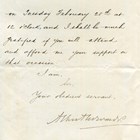 on Tuesday February 28th at
12 o'clock, and I shall be much
gratified if you will attend
and afford me your support on
that occasion
I am
Your obedient servant